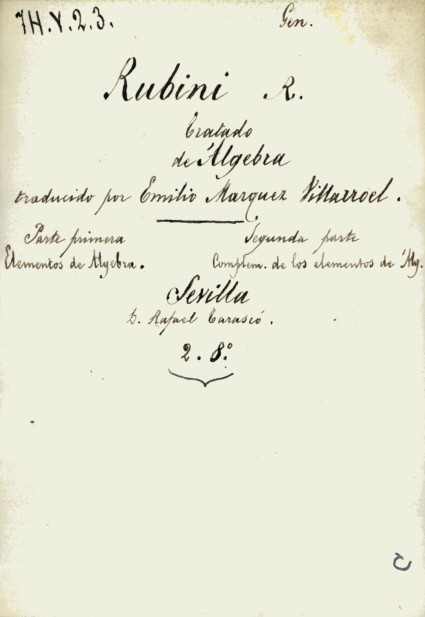 7H.Y.2.3. Gen.
Rubini R.
tratado
de Álgebra
traducido por Emilio Marquez Villarroel.
Parte primera Segunda parte
Elementos de Algebra. Complem. de los elementos de Álg.
Sevilla
D. Rafael Tarascó.
2. 8.º